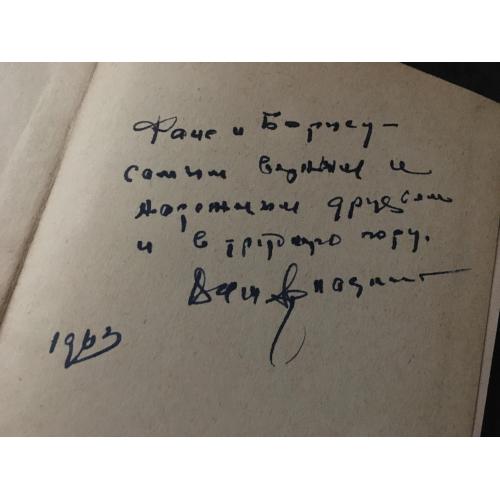 Фане и Борису –
самым верным и
надежным друзьям
и в трудную пору.
1963